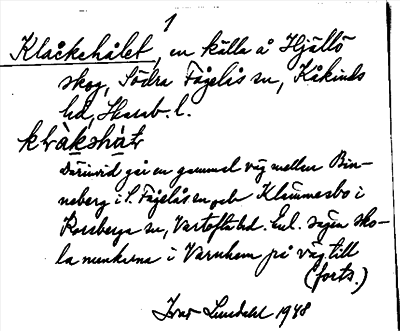 1
Klåckehålet, en källa å Hjällö
skog, Södra Fågelås sn, Kåkinds
hd, Skarab. l.
kråkshåt
Därinvid går en gammal väg mellan Bin-
neberg i S. Fågelås sn och Klämmesbo i
Korsberga sn, Vartofta hd. Enl. sägen sko-
la munkarna i Varnhem på väg till
(forts.)
Ivar Lundahl 1948